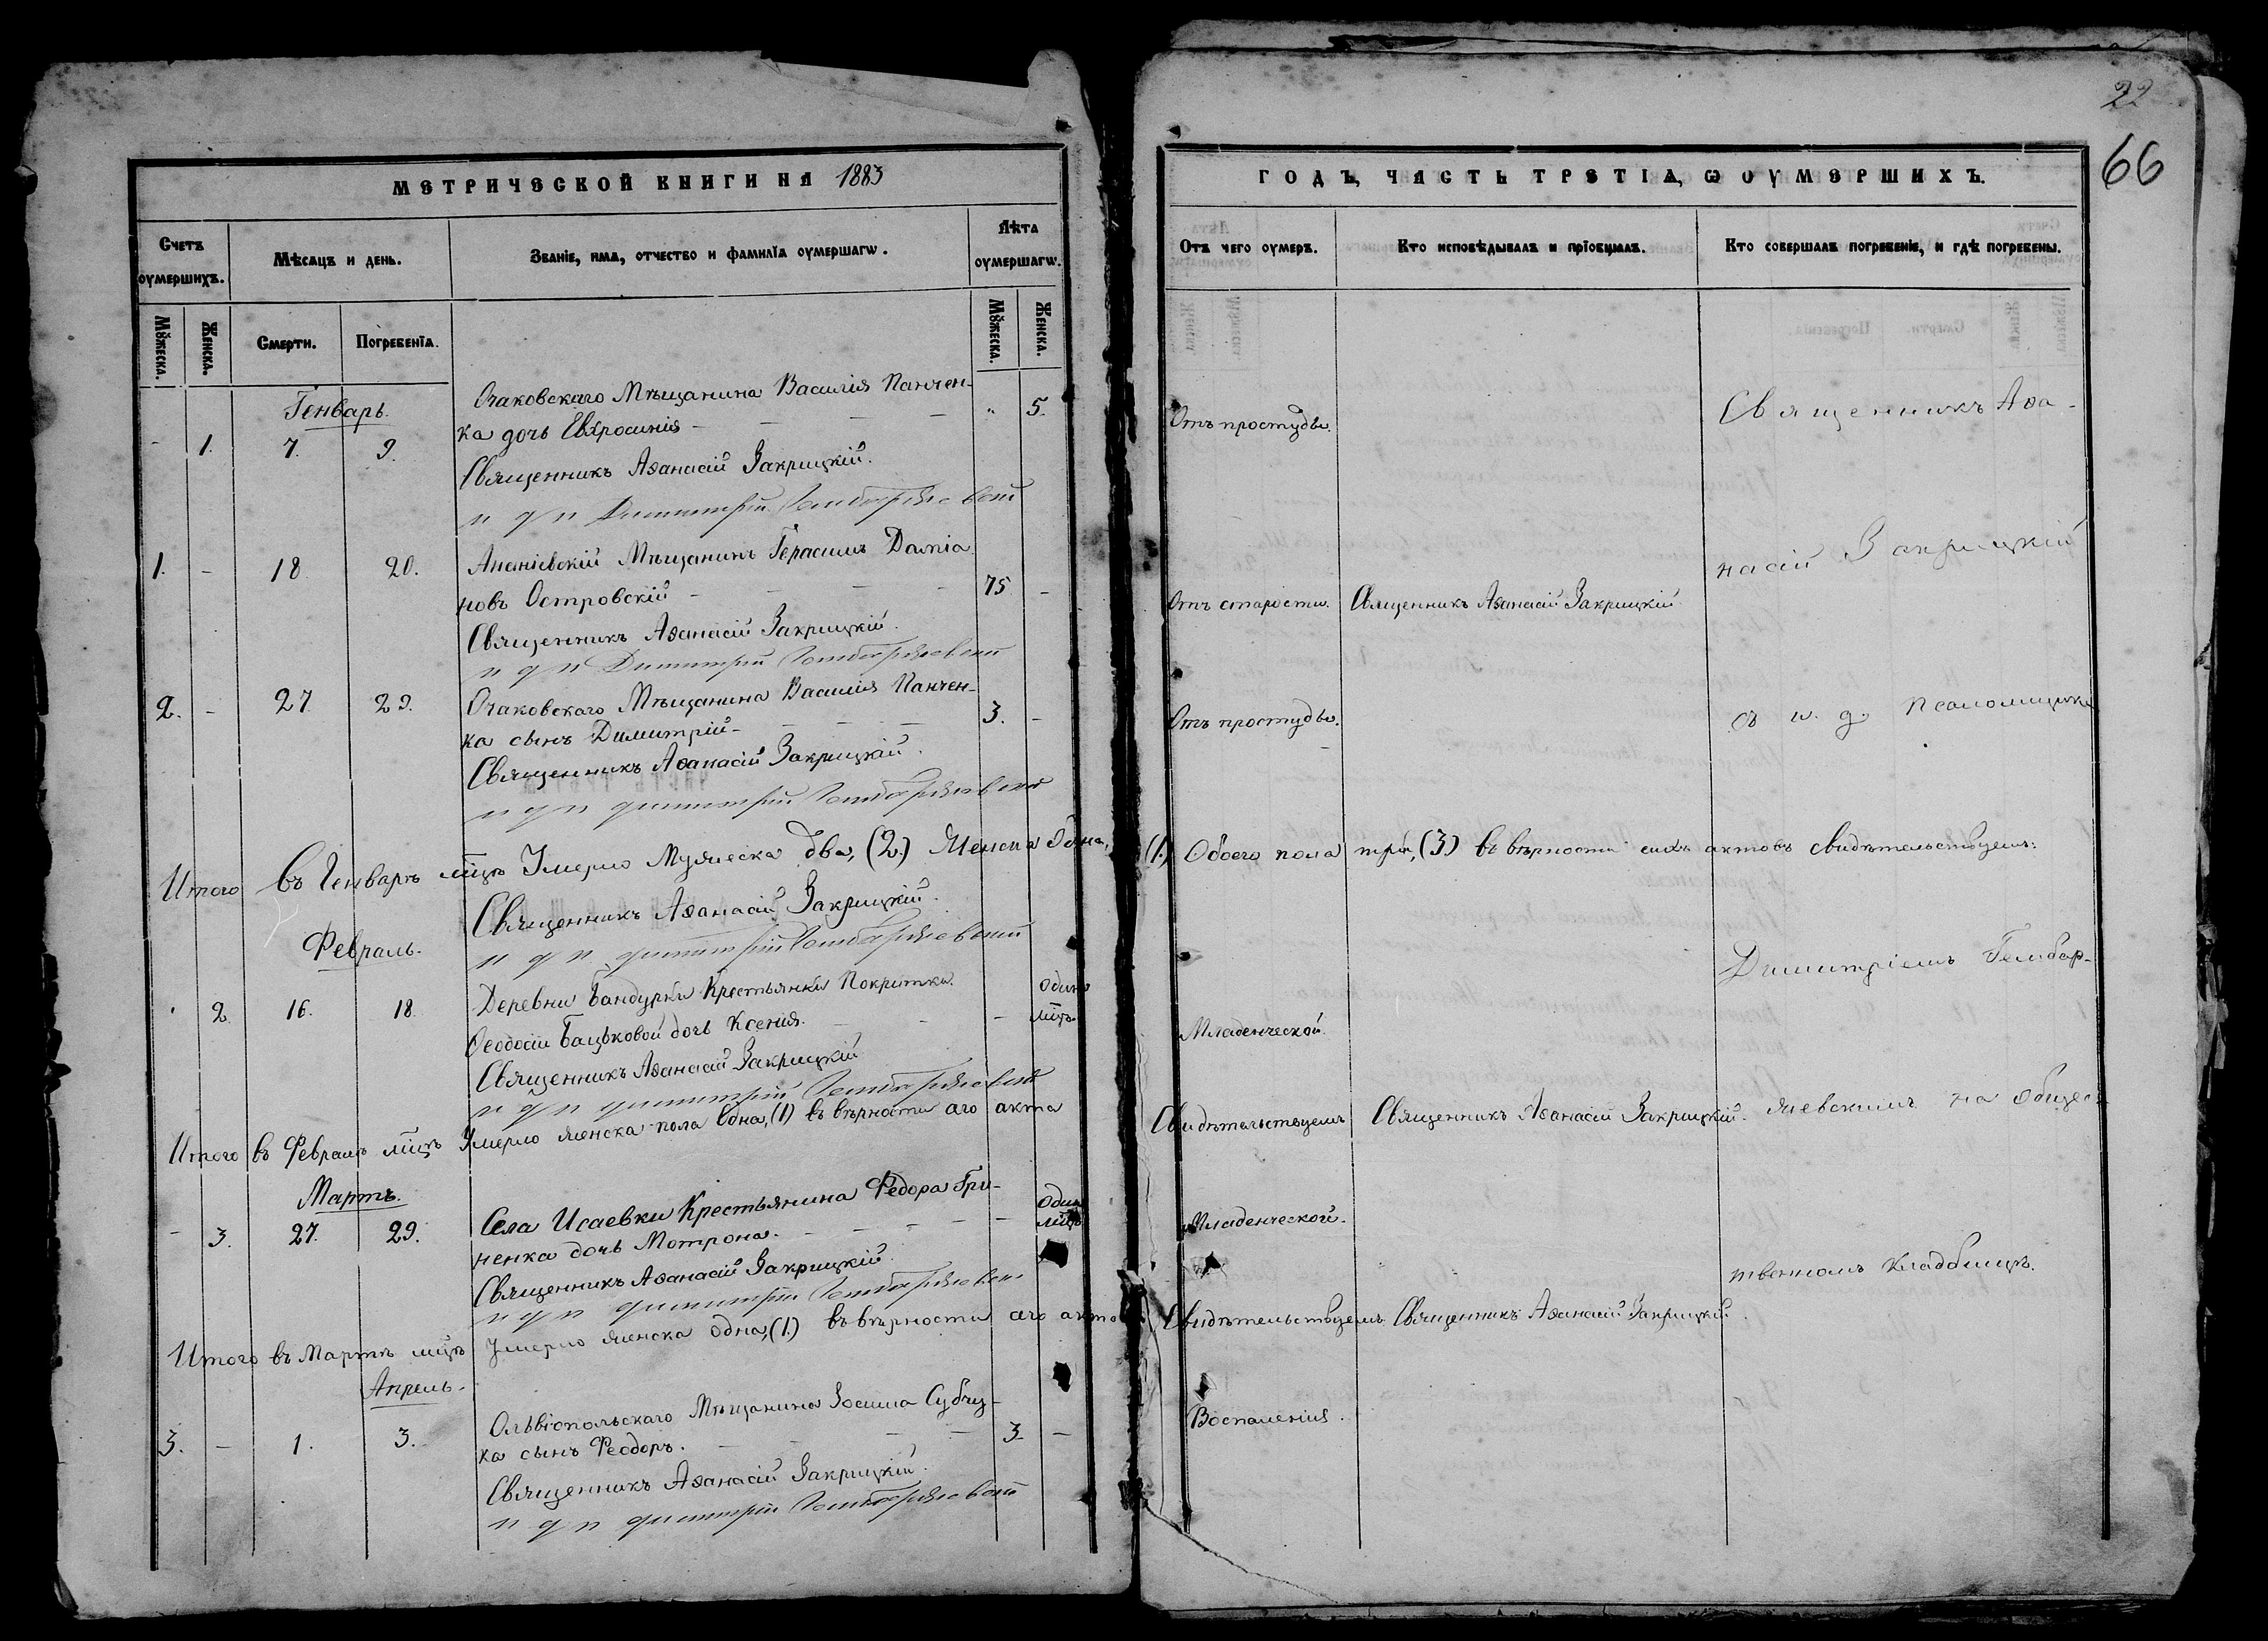 МЕТРИЧЕСКОЙ КНИГИ НА 1883
Счетъ оумершихъ.
Мѣсяцъ и день.
Званіе, имя, отчество и фамилїа оумершагѡ.
Лѣта оумершагѡ.
Мꙋжеска.
Женска.
Смерти.
Погребенїа.
Мꙋжеска.
Женска.
Генварь.
Очаковскаго Мѣщанина Василія Панчен-
- 1. 7. 9. ка дочь Евѳросинія - - - " 5.
Священникъ Аѳанасій Закрицкій.
и д п Димитрій
1. - 18 20. Ананіевскій Мѣщанинъ Герасимъ Даміа
новъ Островскій - - - 75 -
Священникъ Аѳанасій Закрицкій.
и д п Димитрій
2. - 27. 29. Очаковскаго Мѣщанина Василія Панчен-
ка сынъ Димитрій - - - - 3. -
Священникъ Аѳанасій Закрицкій.
и д п Димитрій
Итого въ Генварѣ мцѣ Умерло Мужеска два, (2.) Женска одна,
Священникъ Аѳанасій Закрицкій.
и д п Димитрій
Февраль.
2. 16. 18. Деревни Бандурки Крестьянки Покритки
Ѳеодосіи Бацьковой дочь Ксенія. - - - одинъ мцъ.
Священникъ Аѳанасій Закрицкій
и д п Димитрій
Итого въ Февралѣ мцѣ Умерло женска пола одна, (1) въ вѣрности сего акта
Мартъ.
- 3. 27. 29. Села Исаевки Крестьянина Федора Гри-
ненка дочь Мотрона. - - - - - одинъ мцъ
Священникъ Аѳанасій Закрицкій.
и д п Димитрій
Итого въ Мартѣ мцѣ Умерло женска одна, (1.) въ вѣрности сего акта
Апрель.
3. - 1. 3. Ольвіопольскаго Мѣщанина Зосима Субчу-
ка сынъ Ѳеодоръ. - - - - 3. -
Священникъ Аѳанасій Закрицкій.
и д п Димитрій
22
66
ГОДЪ, ЧАСТЬ ТРЕТІА, Ѡ ОУМЕРШИХЪ.
Отъ чего оумеръ.
Кто исповѣдывалъ и прїобщалъ.
Кто совершалъ погребенїе, и гдѣ погребены.
Отъ простуды.
Священникъ Аѳа-
насій Закрицкій
Отъ старости. Священникъ Аѳанасій Закрицкій.
Отъ простуды. съ и. д. псаломщика
(1.) Обоего пола три, (3) въ вѣрности сихъ актовъ свидѣтельствуемъ:
Димитріемъ Гембар-
Младенческой.
Свидѣтельствуемъ Священникъ Аѳанасій Закрицкій. жевскимъ на общес
Младенческой.
твенномъ кладбищѣ.
Свидѣтельствуемъ Священникъ Аѳанасій Закрицкій.
Воспаленія.